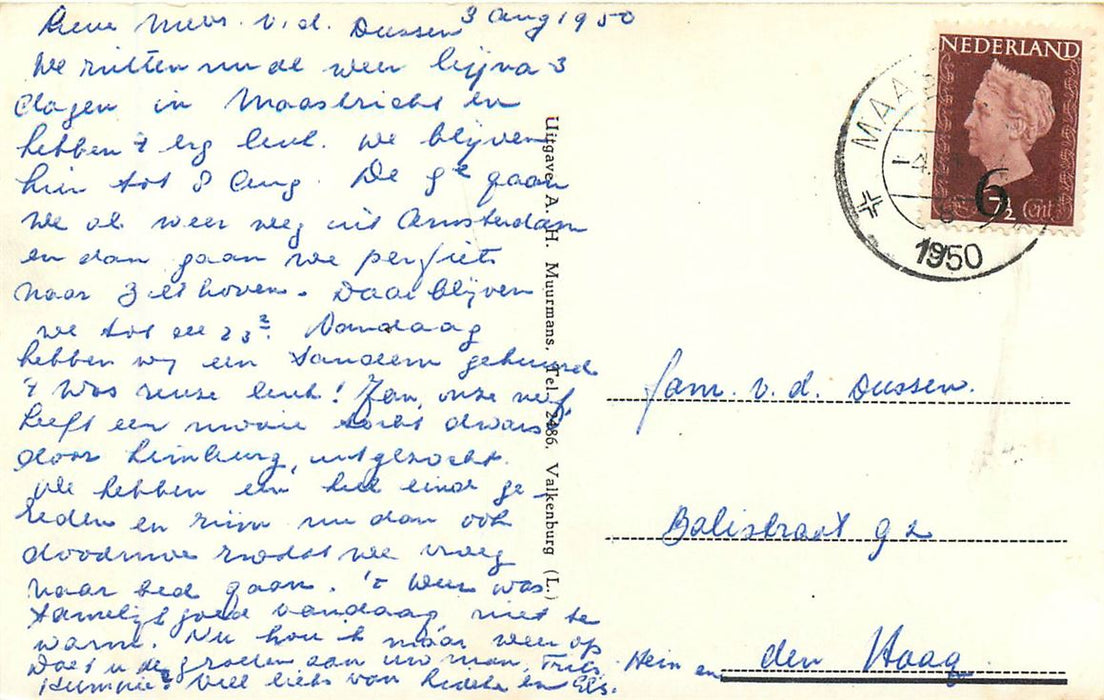 Lieve Mevr. v. d. Dussen 3 Aug 1950
We zitten nu al weer bijna 3
dagen in Maastricht en
hebben 't erg leuk. We blijven
hier tot 8 Aug. De 9e gaan
we al weer weg uit Amsterdam
en dan gaan we per fiets
naar Bilthoven. Daar blijven
we tot de 23e. Vandaag
hebben wij een tandem gehuurd
't Was reuze leuk! Jan, onze neef,
heeft een mooie tocht dwars
door Limburg, uitgezocht.
We hebben een heel eind ge-
reden en zijn nu dan ook
doodmoe zodat we vroeg
naar bed gaan. 't Weer was
tamelijk goed vandaag, niet te
warm. Nu hou ik maar weer op
Doet u de groeten aan uw man, Frits, Hein en
Hummie? Veel liefs van en Els.
Uitgave A. H. Muurmans, Tel. 2486, Valkenburg (L.)
NEDERLAND
6
7½ cent
MAAS
1950
fam. v. d. Dussen.
Balistraat 92
den Haag